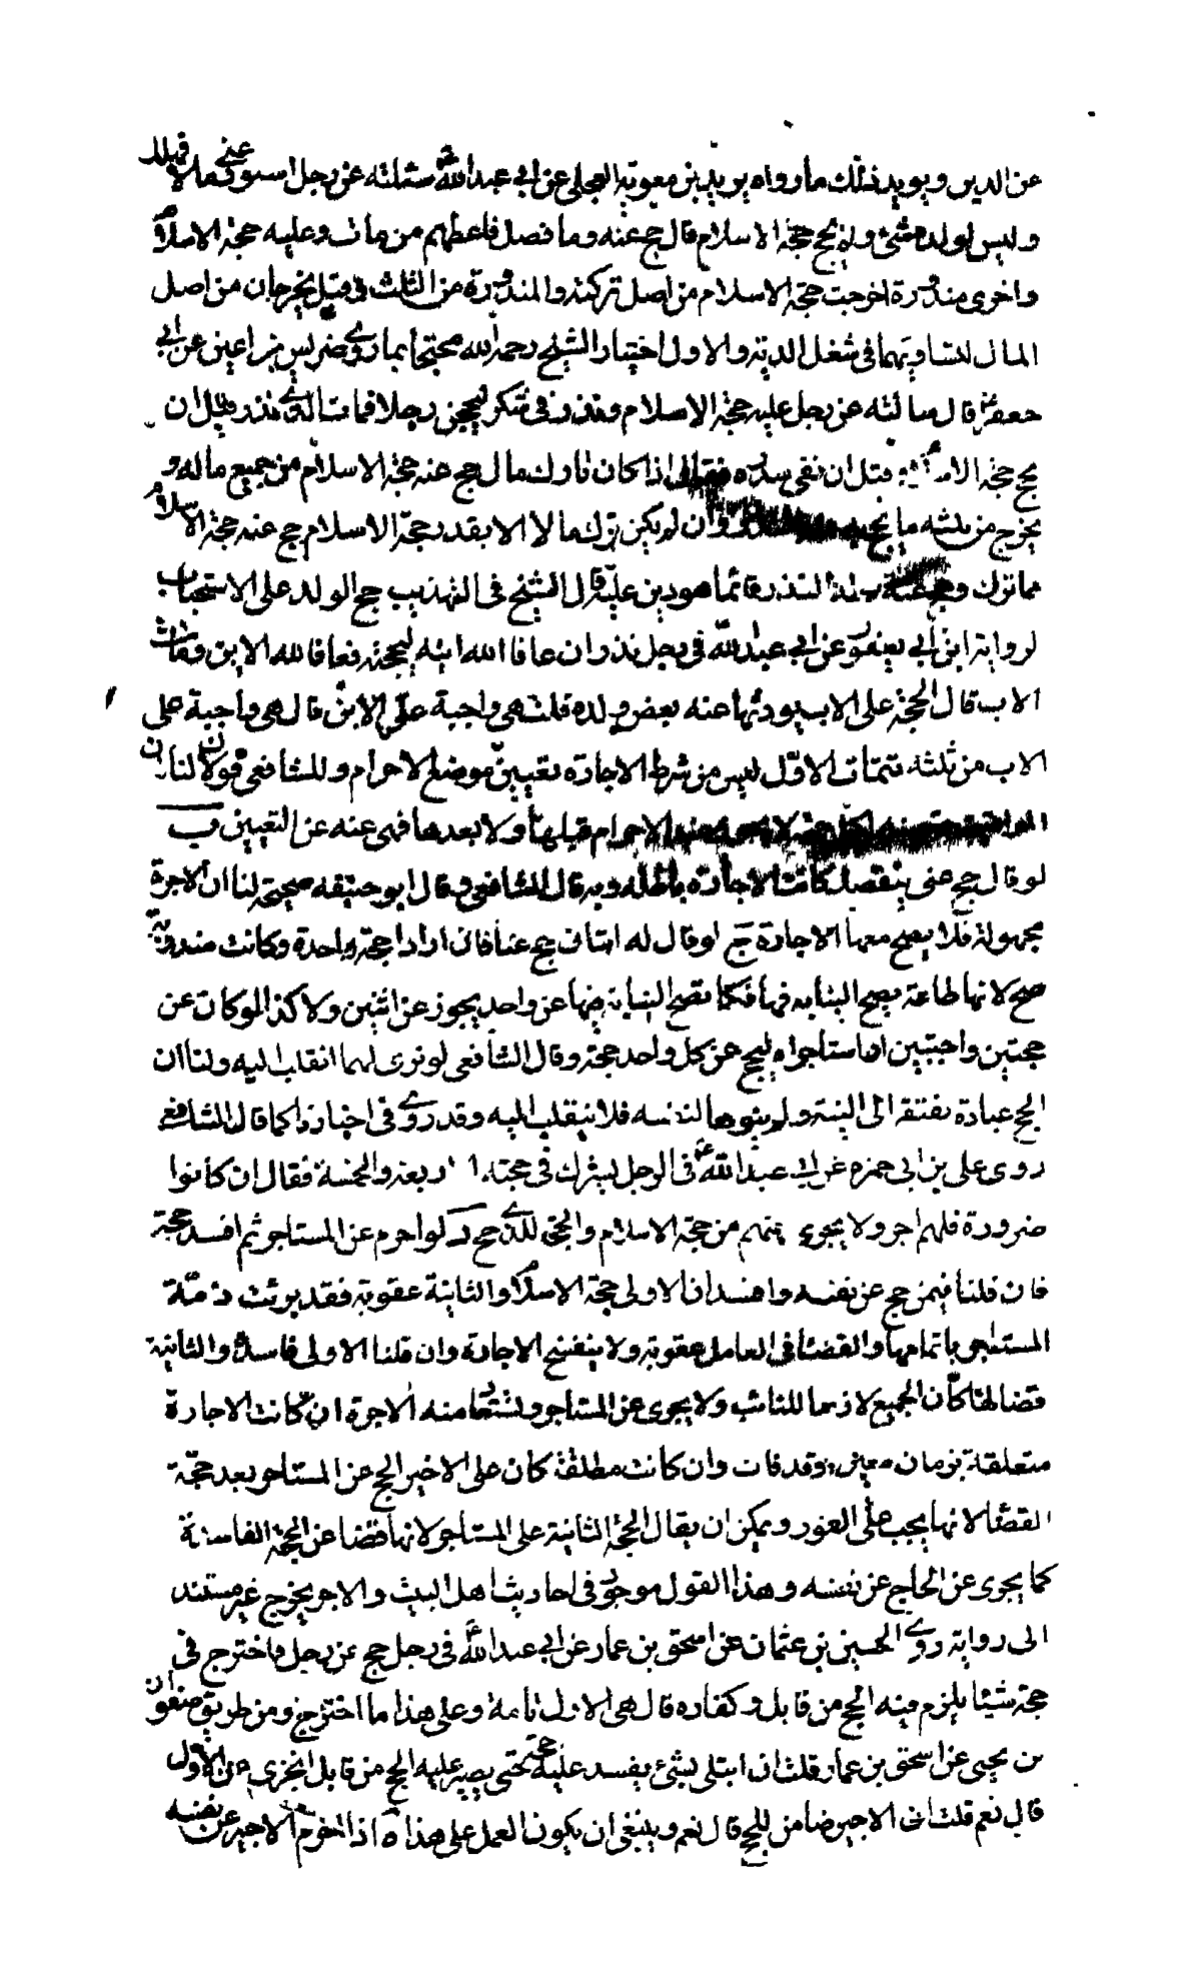 عن الدين ويويد ذلك ما رواه بريد بن معوية العجلى عن ابى عبد الله ع سئلته عن رجل استودعنى مالا فهلك
وليس لولده شئ ولم يحج حجة الاسلام قال حج عنه وما فضل فاعطهم من مات وعليه حجة الاسلام
واخرى منذورة اخرجت حجة الاسلام من اصل تركته والمنذورة من الثلث و قيل يخرجان من اصل
المال لتساويهما فى شغل الذمة والاول اختيار الشيخ رحمه الله محتجا بما روى ضريس بن اعين عن ابى
جعفر ع قال سالته عن رجل عليه حجة الاسلام ونذر فى شكر ليحجن رجلا فمات الذى نذر قبل ان
يحج حجة الاسلام وقبل ان يفى بنذره فقال اذا كان ترك مال حج عنه حجة الاسلام من جميع ماله و
يخرج من ثلثه ما يحج وان لم يكن ترك مالا الا بقدر حجة الاسلام حج عنه حجة الاسلام
مما ترك وحج عنه النذر فانما هو دين عليه قال الشيخ فى التهذيب حج الولد على الاستحباب
لرواية ابن ابى يعفور عن ابى عبد الله ع فى رجل نذر ان عافا الله ابنه ليحجنه فعافا لله الابن ومات
الاب قال الحجة على الاب يوديها عنه بعض ولده قلت هى واجبة على الابن قال هى واجبة على
الاب من ثلثه تتمات الاول ليس من شرط الاجارة تعيين موضع الاحرام وللشافعى قولان لنا ان
الاحرام قبلها ولا بعدها فهى عنه عن التعيين ب
لو قال حج عنى بنفصل كانت الاجارة باطلة وبه قال الشافعى وقال ابو حنيفه صحيحة لنا ان الاجرة
مجهولة فلا يصح معها الاجارة ج لو قال له اثنان حج عنا فان ارادا حجة واحدة وكانت مندوبة
صح لانها طاعة يصح النيابه فيها فكما تصح النيابة فيها عن واحد يجوز عن اثنين ولا كذا لو كان عن
حجتين واجبتين اما استاجراه ليحج عن كل واحد حجة وقال الشافعى لو نوى لهما انقلب اليه ولنا ان
الحج عبادة يفتقر الى النية ولم ينوها لنفسه فلا ينقلب اليه وقد روى فى اخبارنا كما قال الشافعى
روى على بن ابى حمزه عن ابى عبد الله ع فى الرجل يشرك فى حجته الاربعة والخمسة فقال ان كانوا
ضرورة فلهم اجر ولا يجزى عنهم من حجة الاسلام والحج للذى حج د لو احرم عن المستاجر ثم افسد حجة
فان قلنا فيمن حج عن نفسه وافسد ان الاولى حجة الاسلام والثانية عقوبة فقد برئت ذمة
المستاجر باتمامها والقضا فى العامل عقوبة ولا ينفسخ الاجارة وان قلنا الاولى فاسدة والثانية
قضا لها كان الجميع لازما للنائب ولا يجزى عن المستاجر ويستعاد منه الاجرة ان كانت الاجارة
متعلقة بزمان معين وقد فات وان كانت مطلقة كان على الاخير الحج عن المستاجر بعد حجة
القضا لانها يجب على الفور ويمكن ان يقال الحجة الثانية على المستاجر لانها قضا عن الحجة الفاسدة
كما يجزى عن الحاج عن نفسه وهذا القول موجود فى احاديث اهل البيت والاجر يخرج غير مستند
الى رواية روى الحسين بن عثمان عن اسحق بن عمار عن ابى عبد الله ع فى رجل حج عن رجل فاخترج فى
حجة شيئا يلزم فيه الحج من قابل و كفاره قال هى الاول تامة وعلى هذا ما اخترج ومن طريق صفوان
بن يحيى عن اسحق بن عمار قلت ان ابتلى بشئ يفسد عليه حجة حتى يصير عليه الحج من قابل ايجزى عن الاول
قال نعم قلت ان الاجير ضامن للحج قال نعم وينبغى ان يكون العمل على هذا ه اذا احرم الاجير عن نفسه